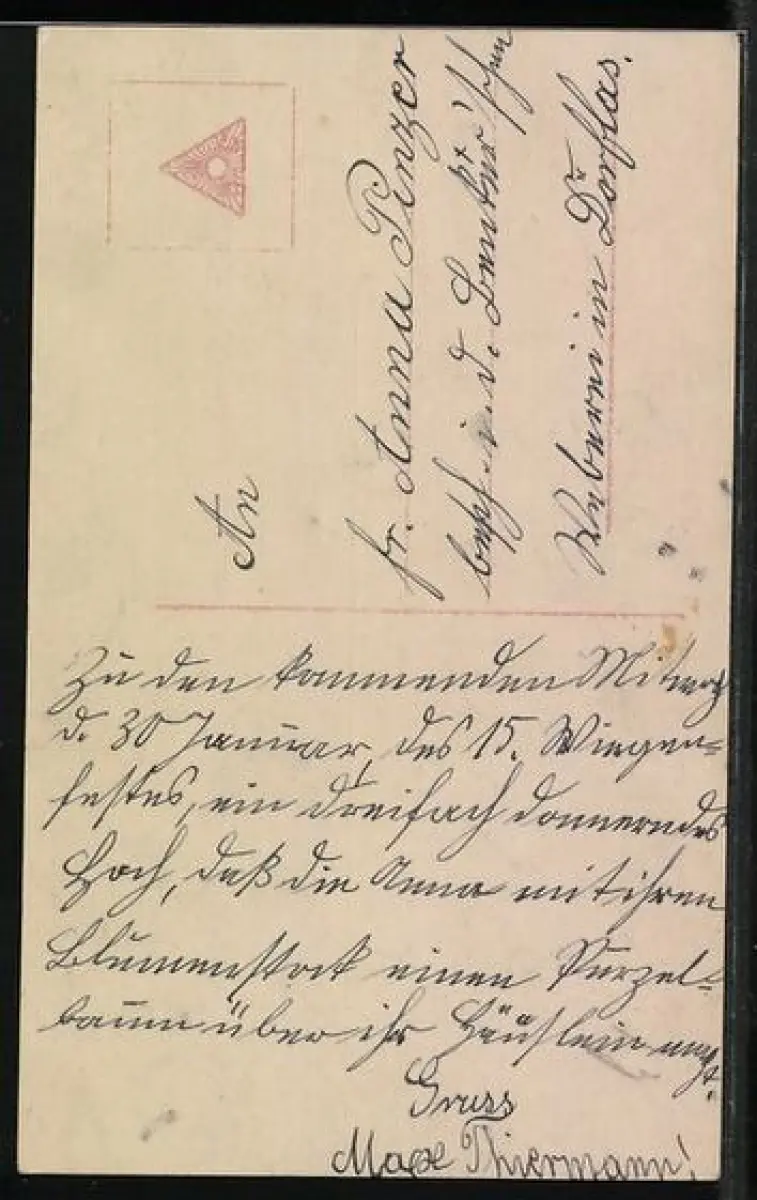 An
Fr. Anna Penzer
besch. i. d.
Weberei in Dörflas.
Zu den kommenden Mitwoch
d. 30 Januar, des 15. Wiegen=
festes, ein dreifach donnerndes
Hoch, daß die Anna mit ihren
Blumenstock einen Purzel=
baum über ihr Häuslein macht.
Gruss
Max Thiermann!